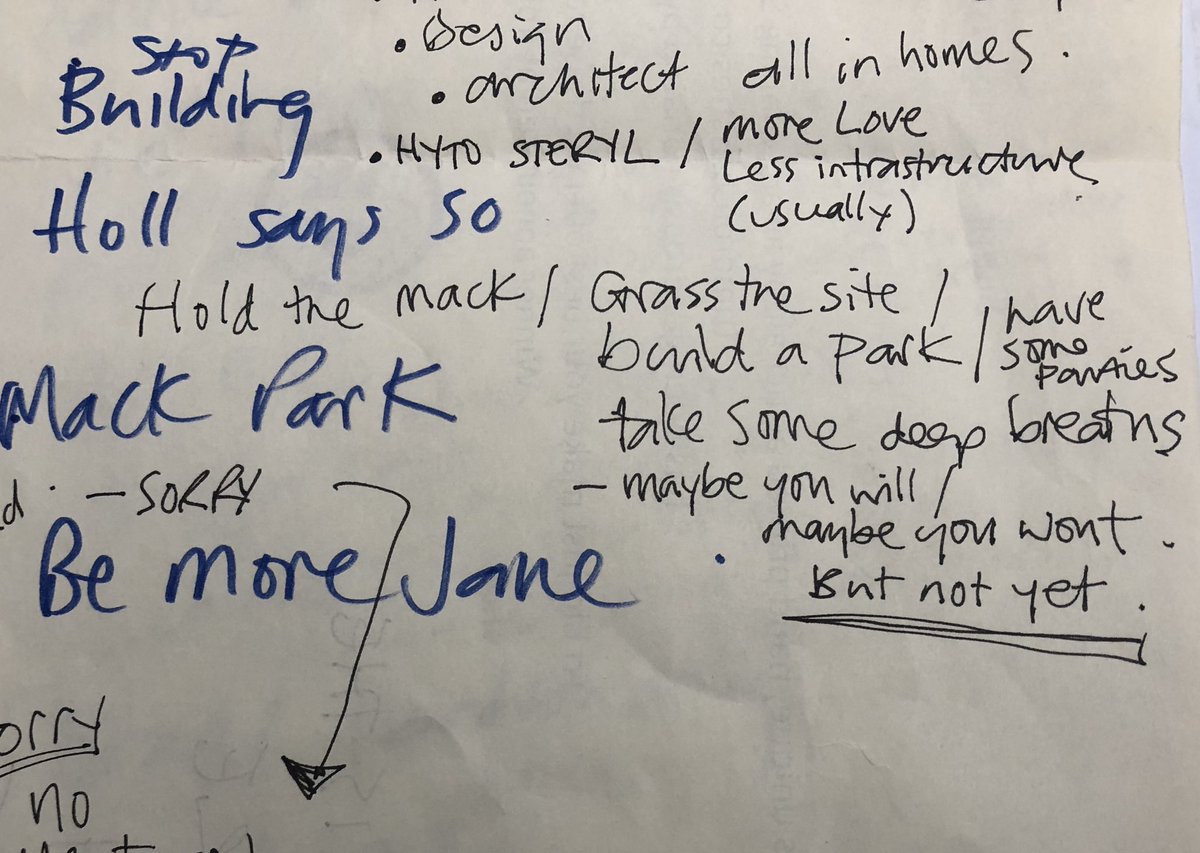 • Design
Stop
• architect all in homes.
Building
• HYTO STERYL / more Love
Less intrastructure
(usually)
Holl says so
Hold the mack / Grass the site /
build a park / have
some
parties
Mack Park
take some deep breaths
d · - SORRY
- maybe you will /
maybe you wont.
Be more Jane
But not yet.
orry
no